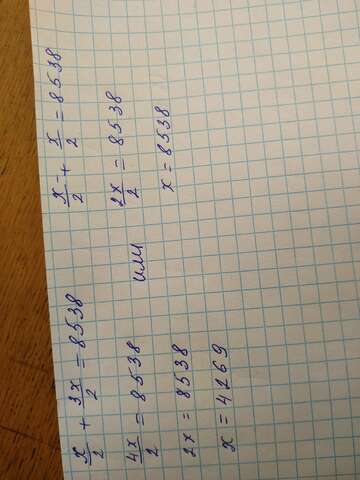 x/2 + 3x/2 = 8538
4x/2 = 8538
2x = 8538
x = 4269
или
x/2 + x/2 = 8538
2x/2 = 8538
x = 8538